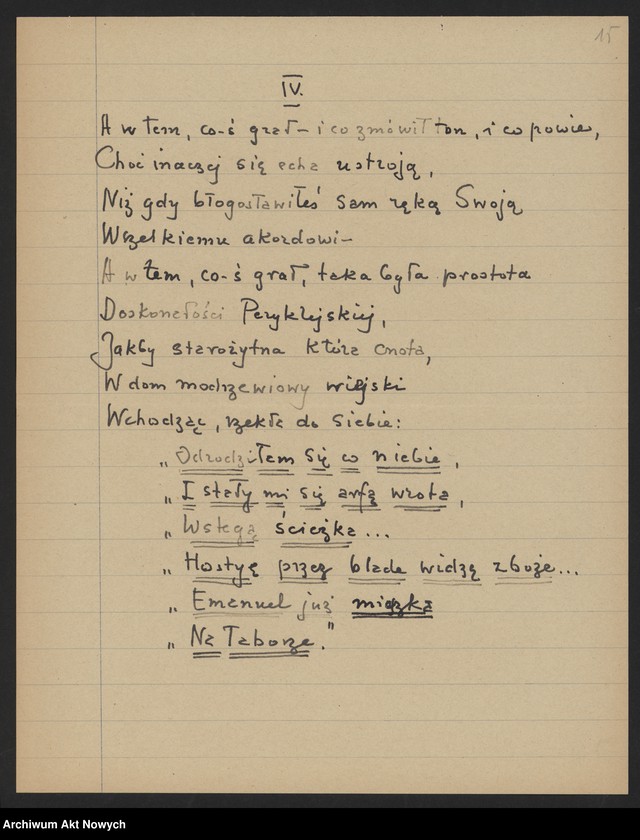 15
IV.
A w tem, co-ś grał – i co zmówił ton, i co powie,
Choć inaczej się echa ustroją,
Niż gdy błogosławiłeś sam ręką Swoją
Wszelkiemu akordowi –
A w tem, co-ś grał, taka była prostota
Doskonałości Peryklejskiej,
Jakby starożytna która cnota,
W dom modrzewiowy wiejski
Wchodząc, rzekła do siebie:
„Odrodziłam się co niebie,
„I stały mi się arfą wrota,
„Wstęgą ścieżka...
„Hostyę przez blade widzę zboże...
„Emanuel już mięszka
„Na Taborze."
Archiwum Akt Nowych